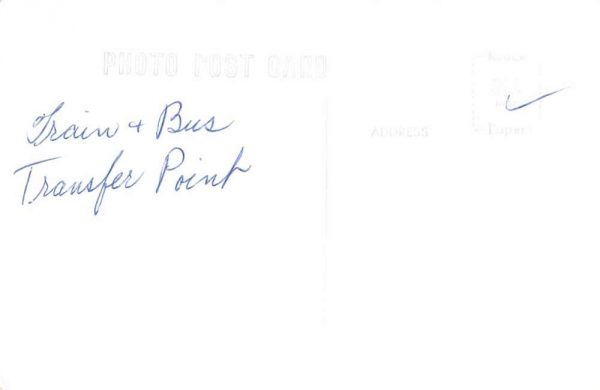 PHOTO POST CARD
Kodak
Paper
ADDRESS
Train + Bus
Transfer Point